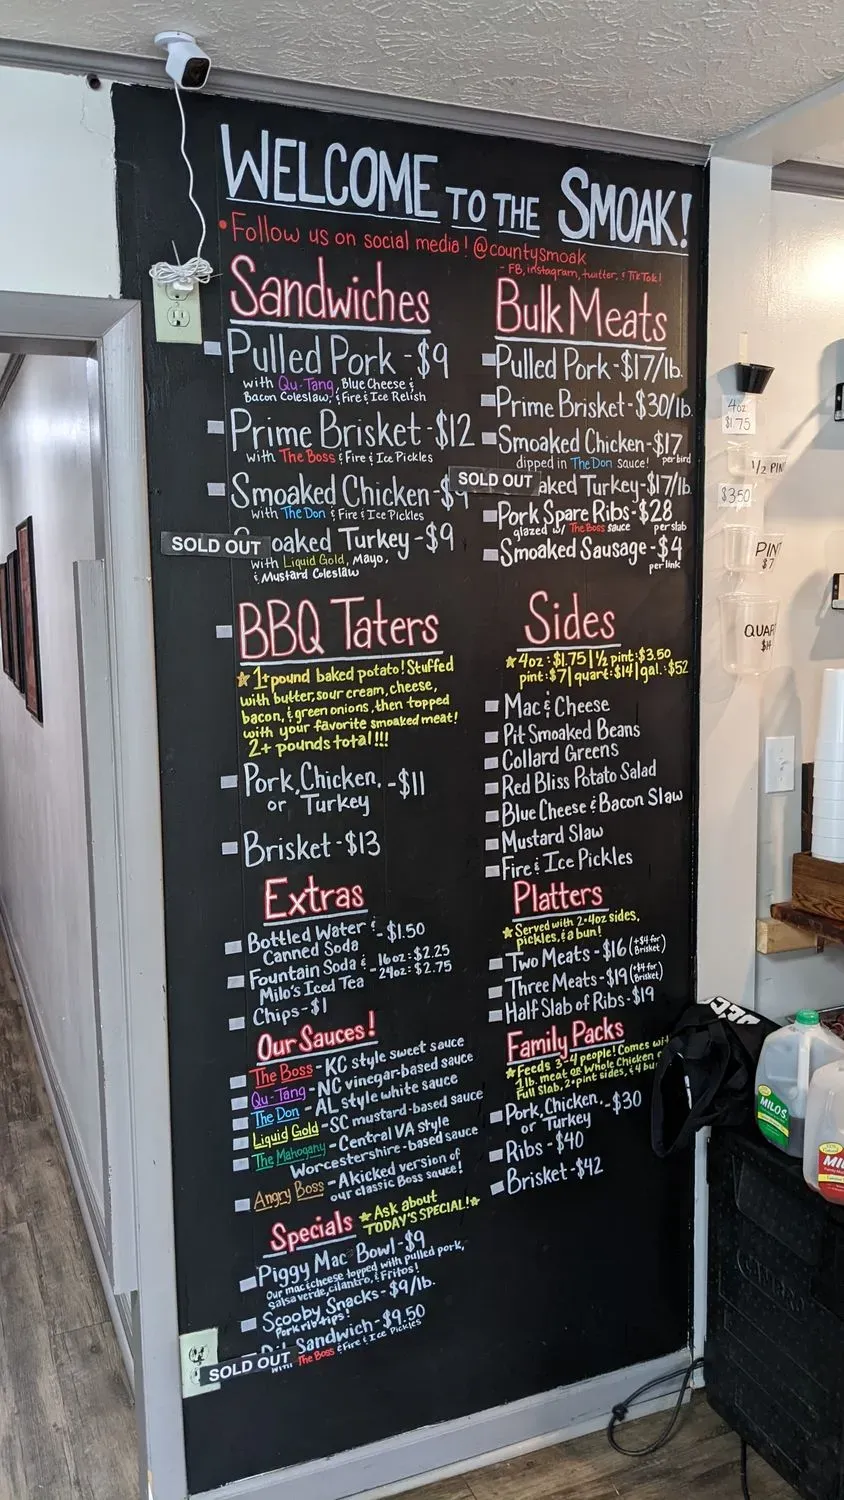 WELCOME TO THE SMOAK!
• Follow us on social media! @countysmoak
- FB, instagram, twitter, & TikTok!
Sandwiches
Pulled Pork - $9
with Qu-Tang, Blue Cheese &
Bacon Coleslaw, & Fire & Ice Relish
Prime Brisket - $12
with The Boss & Fire & Ice Pickles
Smoaked Chicken - $9
with The Don & Fire & Ice Pickles
SOLD OUT
oaked Turkey - $9
with Liquid Gold, Mayo,
& Mustard Coleslaw
BBQ Taters
★ 1+pound baked potato! Stuffed
with butter, sour cream, cheese,
bacon, & green onions, then topped
with your favorite smoaked meat!
2+ pounds total!!!
Pork, Chicken, - $11
or Turkey
Brisket - $13
Extras
Bottled Water & - $1.50
Canned Soda
Fountain Soda & - 16oz: $2.25
Milo's Iced Tea - 24oz: $2.75
Chips - $1
Our Sauces!
The Boss - KC style sweet sauce
Qu-Tang - NC vinegar-based sauce
The Don - AL style white sauce
Liquid Gold - SC mustard-based sauce
The Mahogany - Central VA style
Worcestershire-based sauce
Angry Boss - A kicked version of
our classic Boss sauce!
Specials ★ Ask about
TODAY'S SPECIAL! ★
Piggy Mac Bowl - $9
Our mac & cheese topped with pulled pork,
salsa verde, cilantro, & Fritos!
Scooby Snacks - $9/lb.
Pork rib tips!
Sandwich - $9.50
SOLD OUT
with The Boss & Fire & Ice Pickles
Bulk Meats
Pulled Pork - $17/lb.
Prime Brisket - $30/lb.
Smoaked Chicken - $17
per bird
dipped in The Don sauce!
SOLD OUT
aked Turkey - $17/lb.
Pork Spare Ribs - $28
glazed w/ The Boss sauce per slab
Smoaked Sausage - $4
per link
Sides
★ 4oz: $1.75 | ½ pint: $3.50
pint: $7 | quart: $14 | gal: $52
Mac & Cheese
Pit Smoaked Beans
Collard Greens
Red Bliss Potato Salad
Blue Cheese & Bacon Slaw
Mustard Slaw
Fire & Ice Pickles
Platters
★ Served with 2-4oz sides,
pickles, & a bun!
Two Meats - $16 (+$4 for Brisket)
Three Meats - $19 (+$4 for Brisket)
Half Slab of Ribs - $19
Family Packs
★ Feeds 3-4 people! Comes wi
1 lb. meat OR Whole Chicken
Full Slab, 2-pint sides, & 4 bu
Pork, Chicken, - $30
or Turkey
Ribs - $40
Brisket - $42
4oz
$1.75
1/2 PIN
$3.50
PIN
$7
QUAR
$14
MILO'S
MI